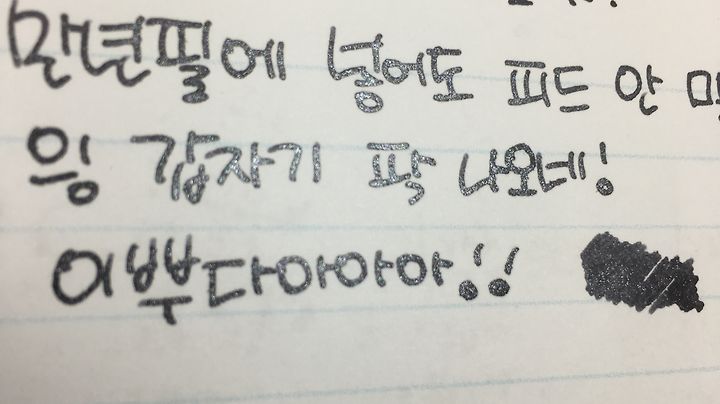 만년필에 넣어도 피드 안
응 갑자기 팍 나오네!
이뿌다아아아!!